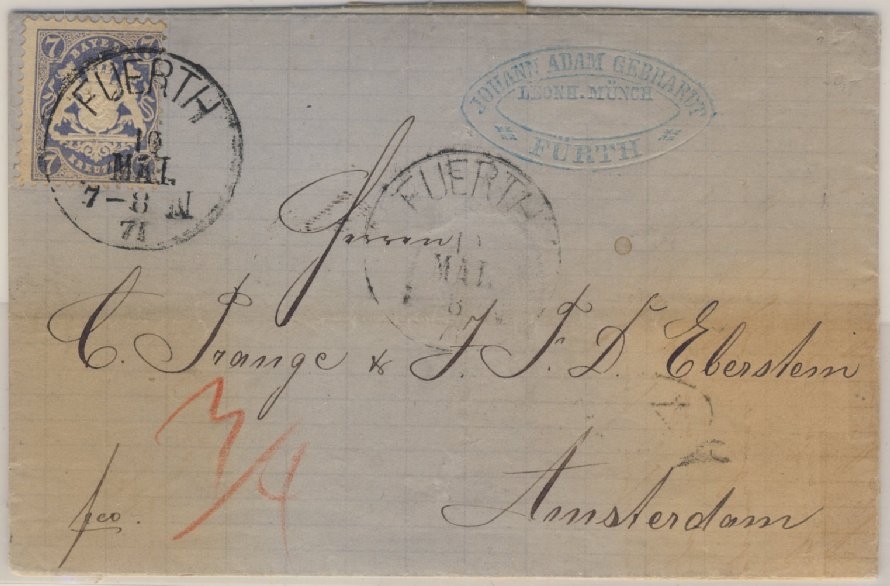 7 BAYERN 7
7 KREUZER 7
FUERTH
19
MAI.
7-8 N
71
JOHANN ADAM GEBHARDT
LEONH. MÜNCH
FÜRTH
FUERTH
MAI.
8
Herren
C. Prange & J. F. D. Eberstein
Amsterdam
fco.
3/4